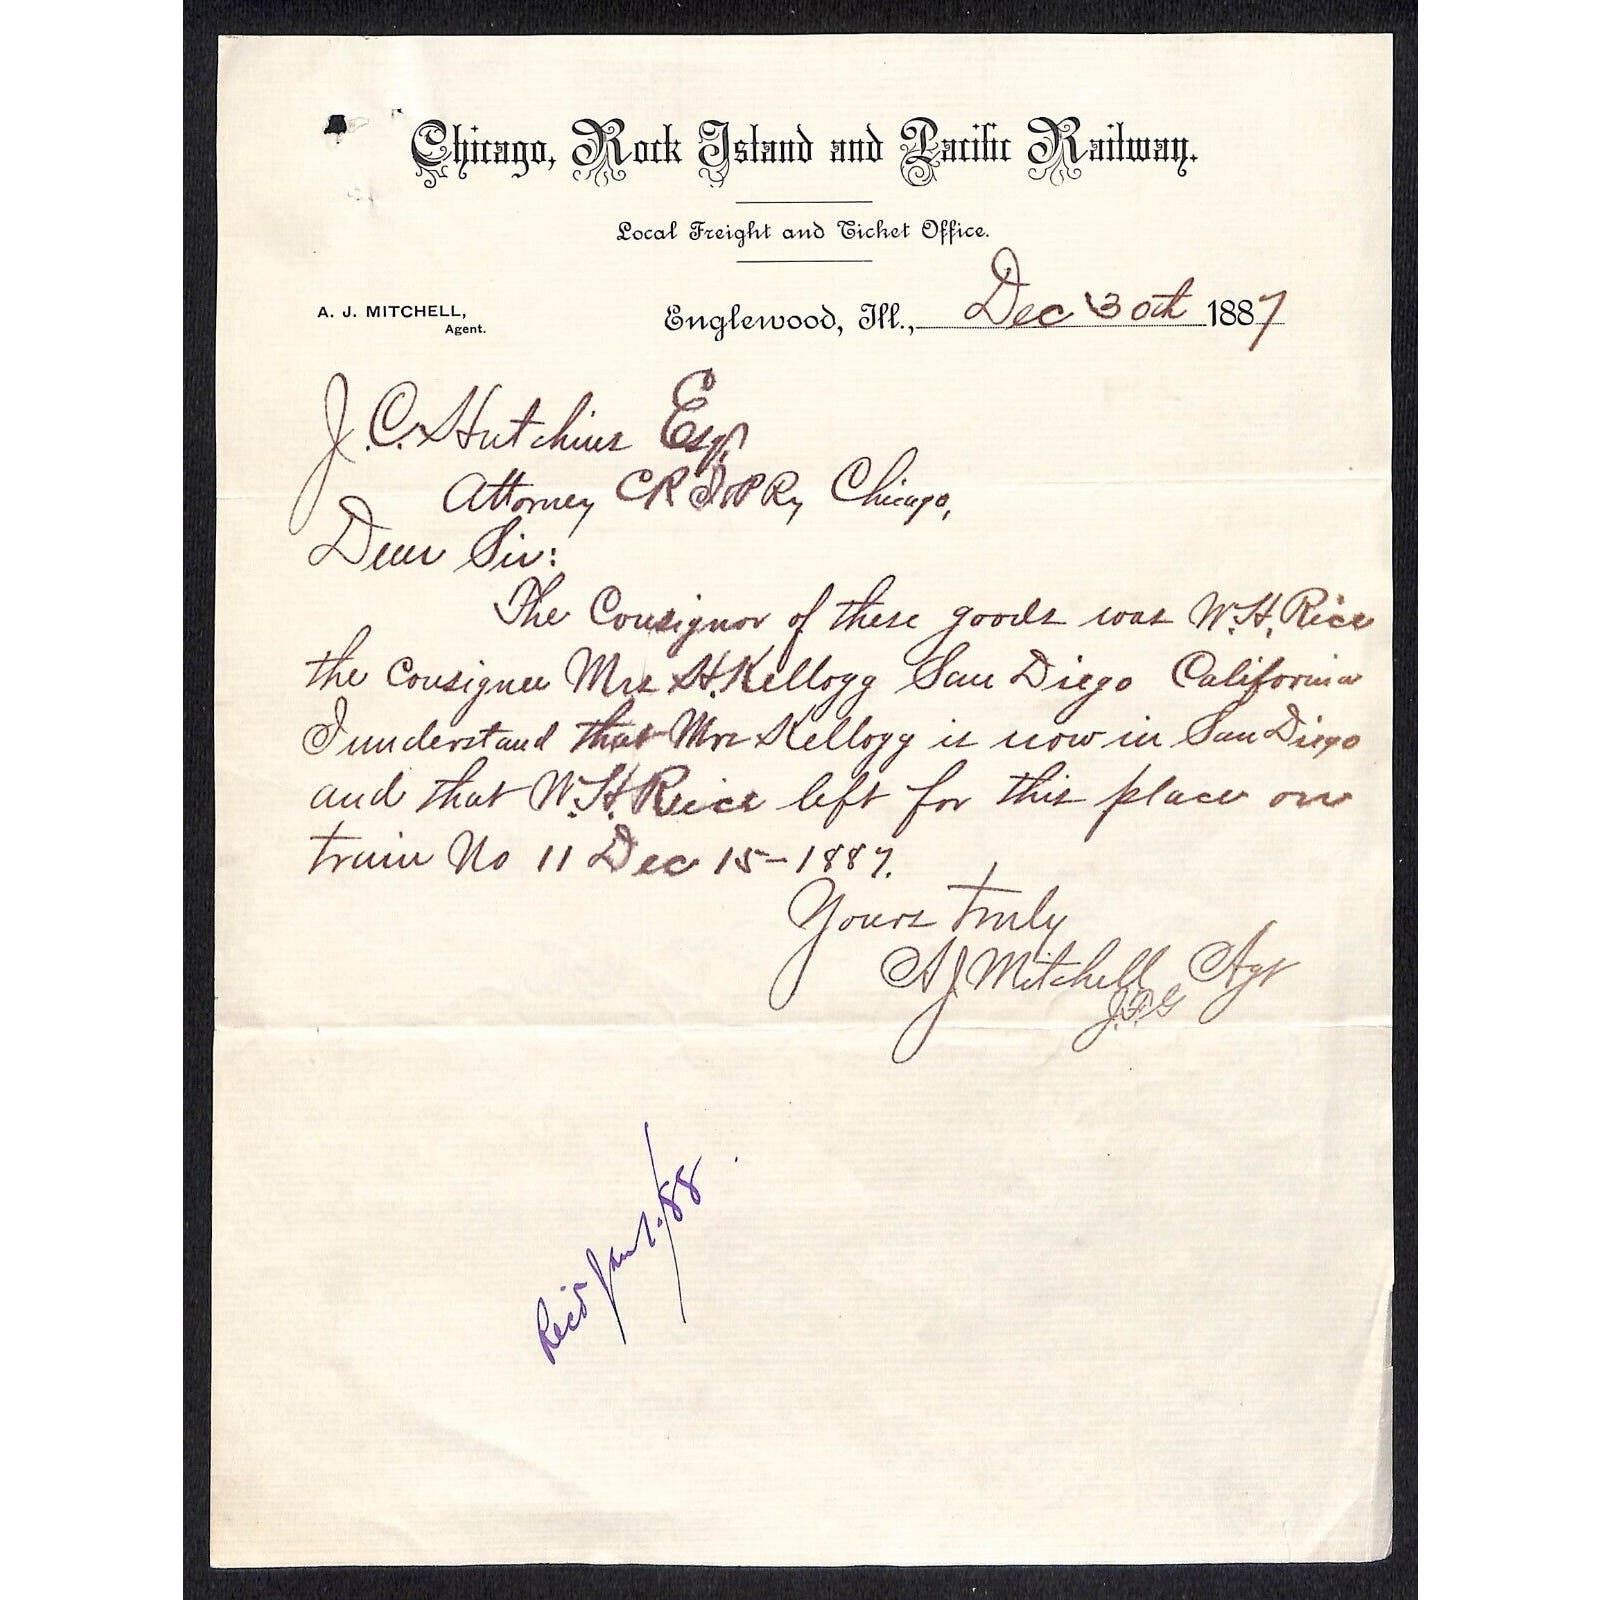 Chicago, Rock Island and Pacific Railway.
Local Freight and Ticket Office.
A. J. MITCHELL,
Agent.
Englewood, Ill., Dec 30th 1887
J. C. Hutchins Esq,
Attorney CRI&P Ry, Chicago,
Dear Sir:
The Consignor of these goods was W. H. Rice
the Consignee Mrs H. Kellogg San Diego California
I understand that Mrs Kellogg is now in San Diego
and that W. H. Rice left for this place on
train No 11 Dec 15-1887.
Yours Truly
A J Mitchell Agt
Rec'd Jan 1. /88